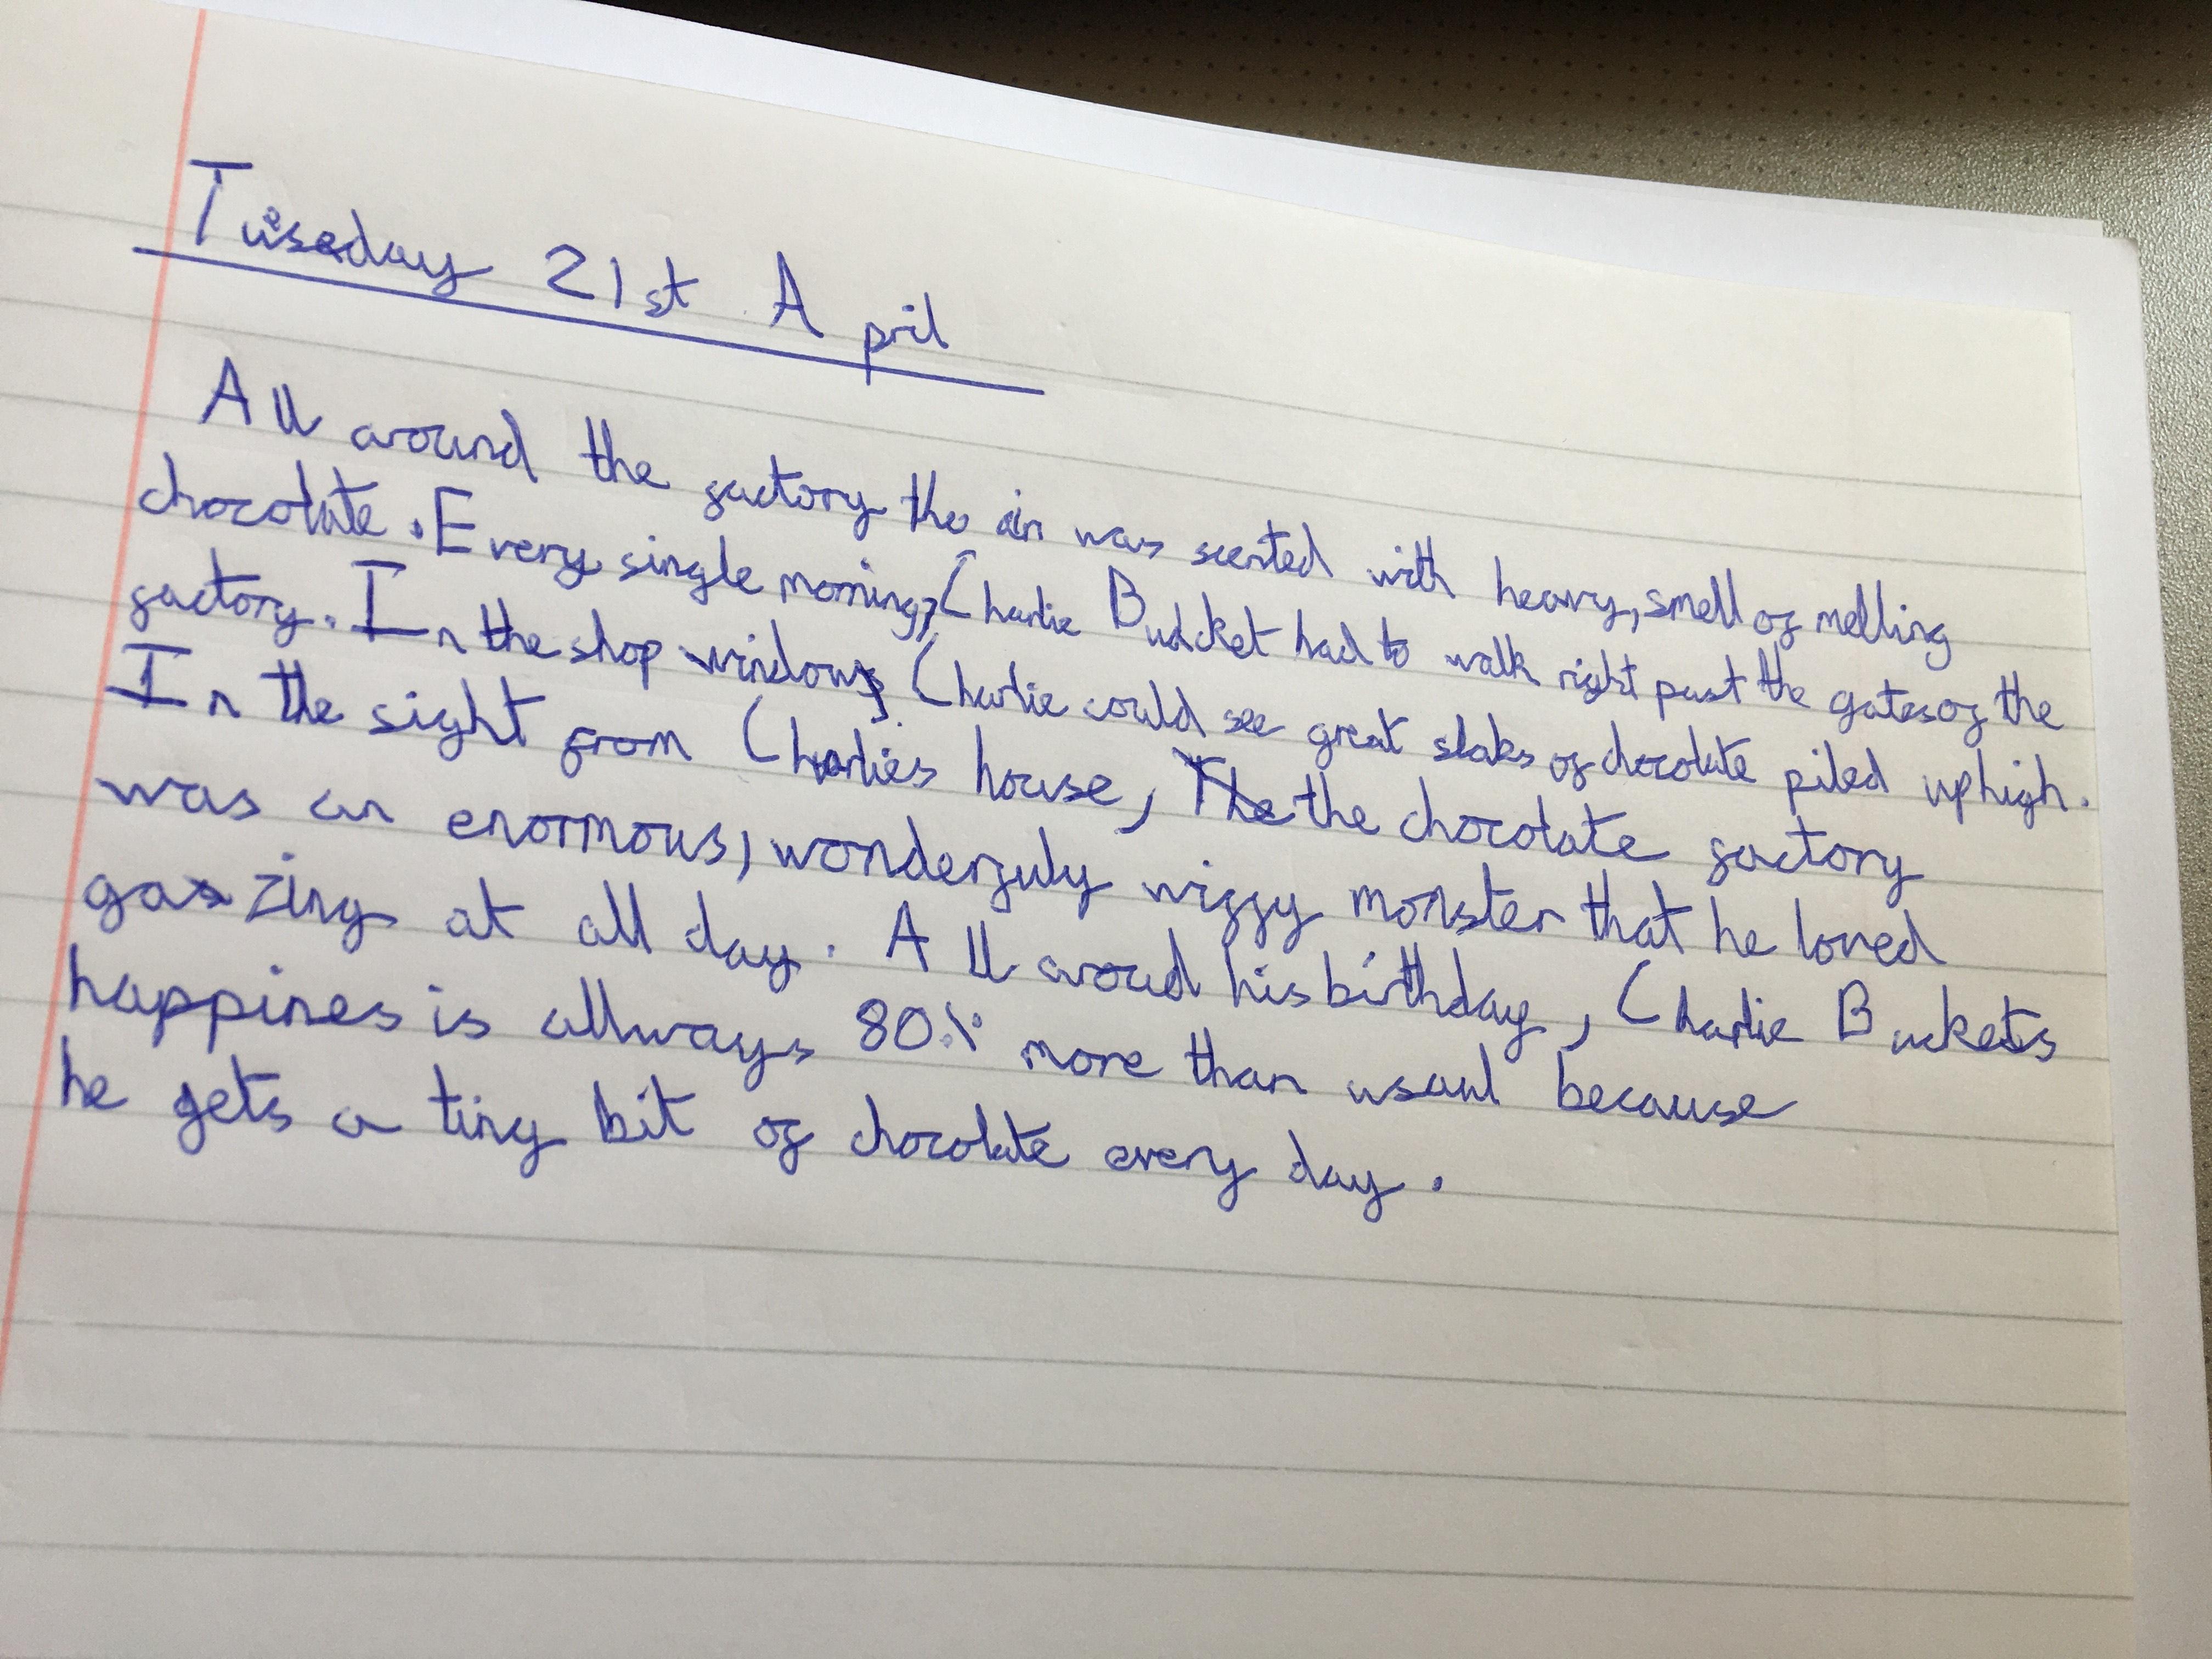 Tuesday 21st April
All around the factory the air was scented with heavy, smell of melling
chocolate. Every single morning, Charlie Budcket had to walk right past the gates of the
factory. In the shop windows, Charlie could see great slabs of chocolate piled up high.
In the sight from Charlies house, The the chocolate factory
was an enormous, wonderfuly wiggy monster that he loved
gazing at all day. All aroud his birthday, Charlie Buckets
happines is allways 80% more than usaul because
he gets a tiny bit of chocolate every day.